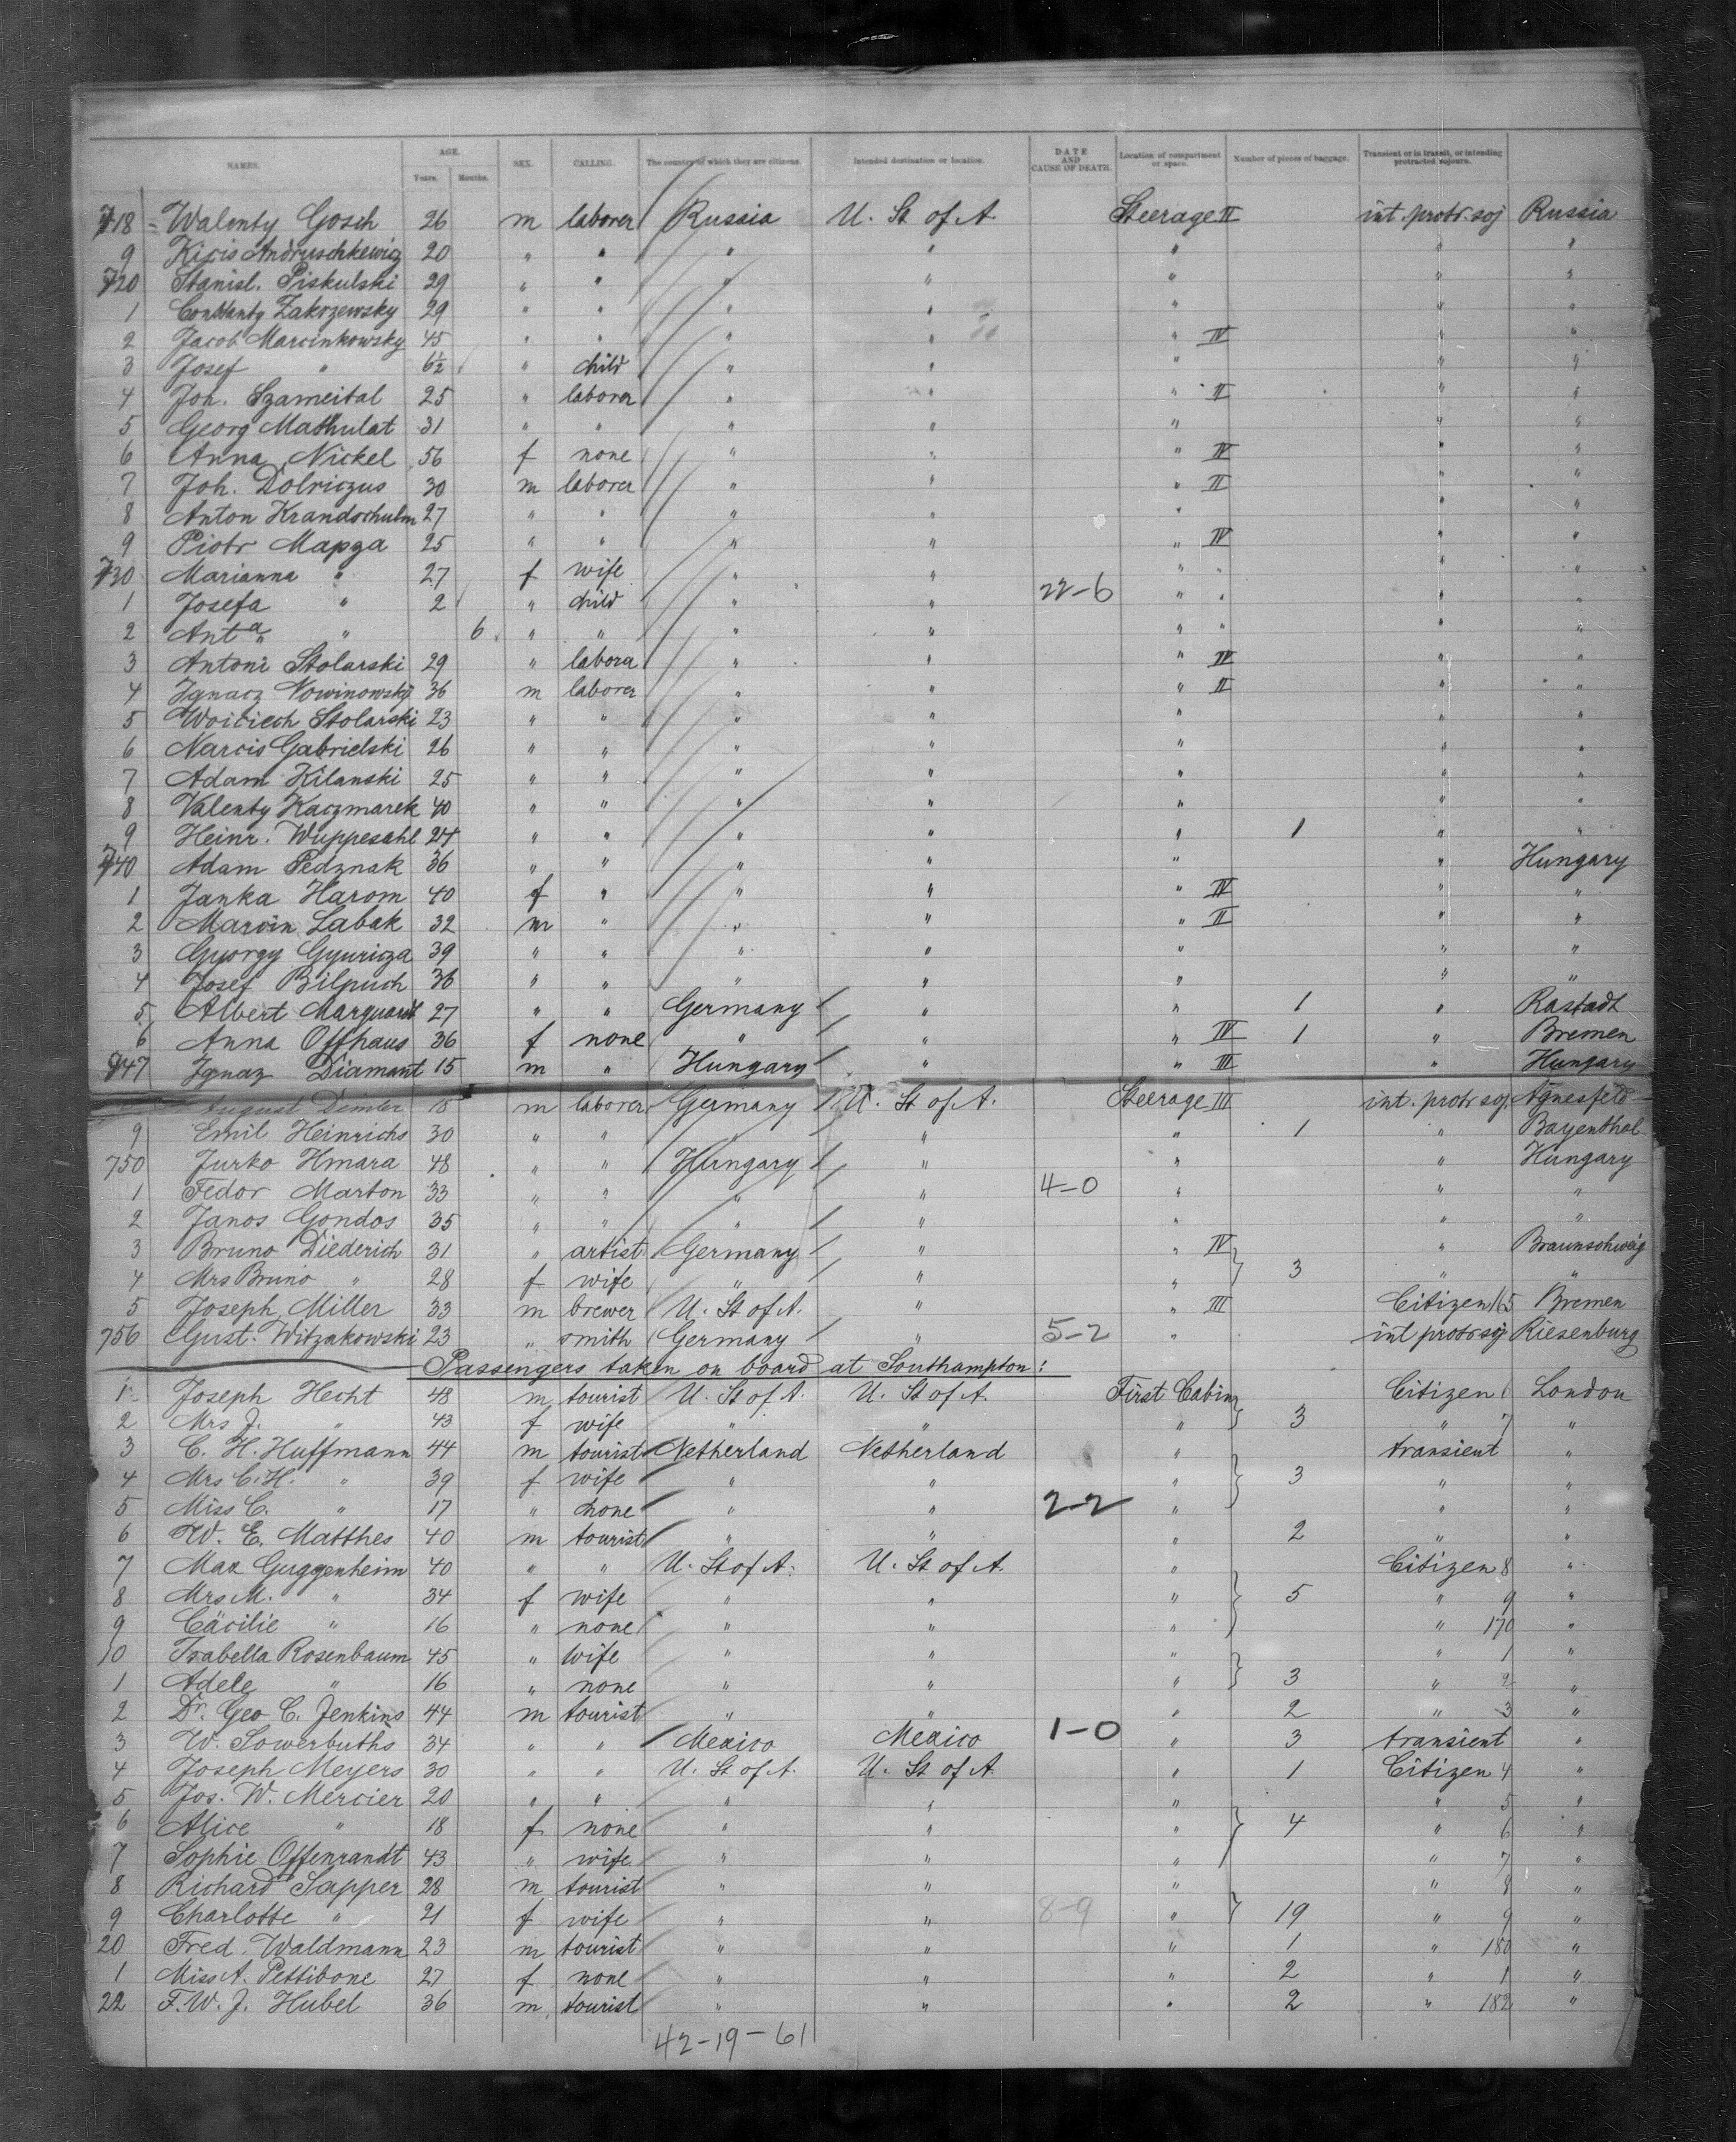 NAMES. AGE. Years. Months. SEX. CALLING. The country of which they are citizens. Intended destination or location. DATE AND CAUSE OF DEATH. Location of compartment or space. Number of pieces of baggage. Transient or in transit, or intending protracted sojourn.
718 = Walenty Gosch 26 m laborer Russia U. St of A Steerage II int. protr. soj Russia
9 Andruschkewicz 20 " " " " " " "
720 Stanisl. Piskulski 29 " " " " " " "
1 Constanty Zakrzewsky 29 " " " " " " "
2 Jacob Marcinkowsky 45 " " " " " IV " "
3 Josef " 6½ " child " " " " "
4 Joh. Szameital 25 " laborer " " " II " "
5 Georg Mathulat 31 " " " " " " "
6 Anna Nickel 56 f none " " " IV " "
7 Joh. Dolriczus 30 m laborer " " " II " "
8 Anton Krandschulm 27 " " " " " " "
9 Piotr Mapza 25 " " " " " IV " "
730 Marianna " 27 f wife " " " " " "
1 Josefa " 2 " child " " 22-6 " " " "
2 Anta " 6 " " " " " " " "
3 Antoni Stolarski 29 " labora " " " IV " "
4 Ignacz Nowinowsky 36 m laborer " " " II " "
5 Woiciech Stolarski 23 " " " " " " "
6 Narcis Gabrielski 26 " " " " " " "
7 Adam Kilanski 25 " " " " " " "
8 Valenty Kaczmarek 40 " " " " " " "
9 Heinr. Wuppesahl 24 " " " " " 1 " "
740 Adam Pedznak 36 " " " " " " Hungary
1 Janka Harom 40 f " " " " IV " "
2 Marcin Labak 32 m " " " " II " "
3 Gyorgy Gyuricza 39 " " " " " " "
4 Josef Bilpuch 36 " " " " " " "
5 Albert Marquardt 27 " " Germany " " 1 " Rastadt
6 Anna Offhaus 36 f none " " " IV 1 " Bremen
747 Ignaz Diamant 15 m " Hungary " " III " Hungary
August Dimler 18 m laborer Germany U. St of A. Steerage III int. protr soj. Agnesfeld
9 Emil Heinrichs 30 " " " " " 1 " Bayenthal
750 Jurko Hmara 48 " " Hungary " " " Hungary
1 Fedor Marton 33 " " " " 4-0 " " "
2 Janos Gondos 35 " " " " " " "
3 Bruno Diederich 31 " artist Germany " " IV 3 " Braunschweig
4 Mrs Bruno " 28 f wife " " " " "
5 Joseph Miller 33 m brewer U. St of A. " " III Citizen 165 Bremen
756 Gust. Witzakowski 23 " smith Germany " 5-2 " int protr soj Riesenburg
Passengers taken on board at Southampton:
1 Joseph Hecht 48 m tourist U. St of A. U. St of A. First Cabin Citizen 6 London
2 Mrs J. " 43 f wife " " " 3 " 7 "
3 C. H. Huffmann 44 m tourist Netherland Netherland " transient "
4 Mrs C. H. " 39 f wife " " " 3 " "
5 Miss C. " 17 " none " " 2-2 " " "
6 W. E. Matthes 40 m tourist " " " 2 " "
7 Max Guggenheim 40 " " U. St of A. U. St of A. " Citizen 8 "
8 Mrs M. " 34 f wife " " " 5 " 9 "
9 Cäcilie " 16 " none " " " " 170 "
10 Isabella Rosenbaum 45 " wife " " " " 1 "
1 Adele " 16 " none " " " 3 " 2 "
2 Dr. Geo C. Jenkins 44 m tourist " " " 2 " 3 "
3 W. Sowerbutts 34 " " Mexico Mexico 1-0 " 3 transient "
4 Joseph Meyers 30 " " U. St of A. U. St of A. " 1 Citizen 4 "
5 Jos. W. Mercier 20 " " " " " " 5 "
6 Alice " 18 f none " " " 4 " 6 "
7 Sophie Offenrandt 43 " wife " " " " 7 "
8 Richard Sapper 28 m tourist " " " " 8 "
9 Charlotte " 21 f wife " " 8-9 " 19 " 9 "
20 Fred. Waldmann 23 m tourist " " " 1 " 180 "
1 Miss A. Pettibone 27 f none " " " 2 " 1 "
22 F. W. J. Hubel 36 m tourist " " " 2 " 182 "
42-19-61